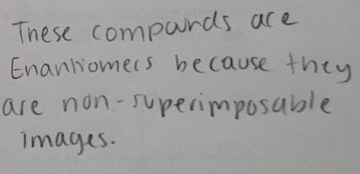 These compounds are
Enantiomers because they
are non-superimposable
images.